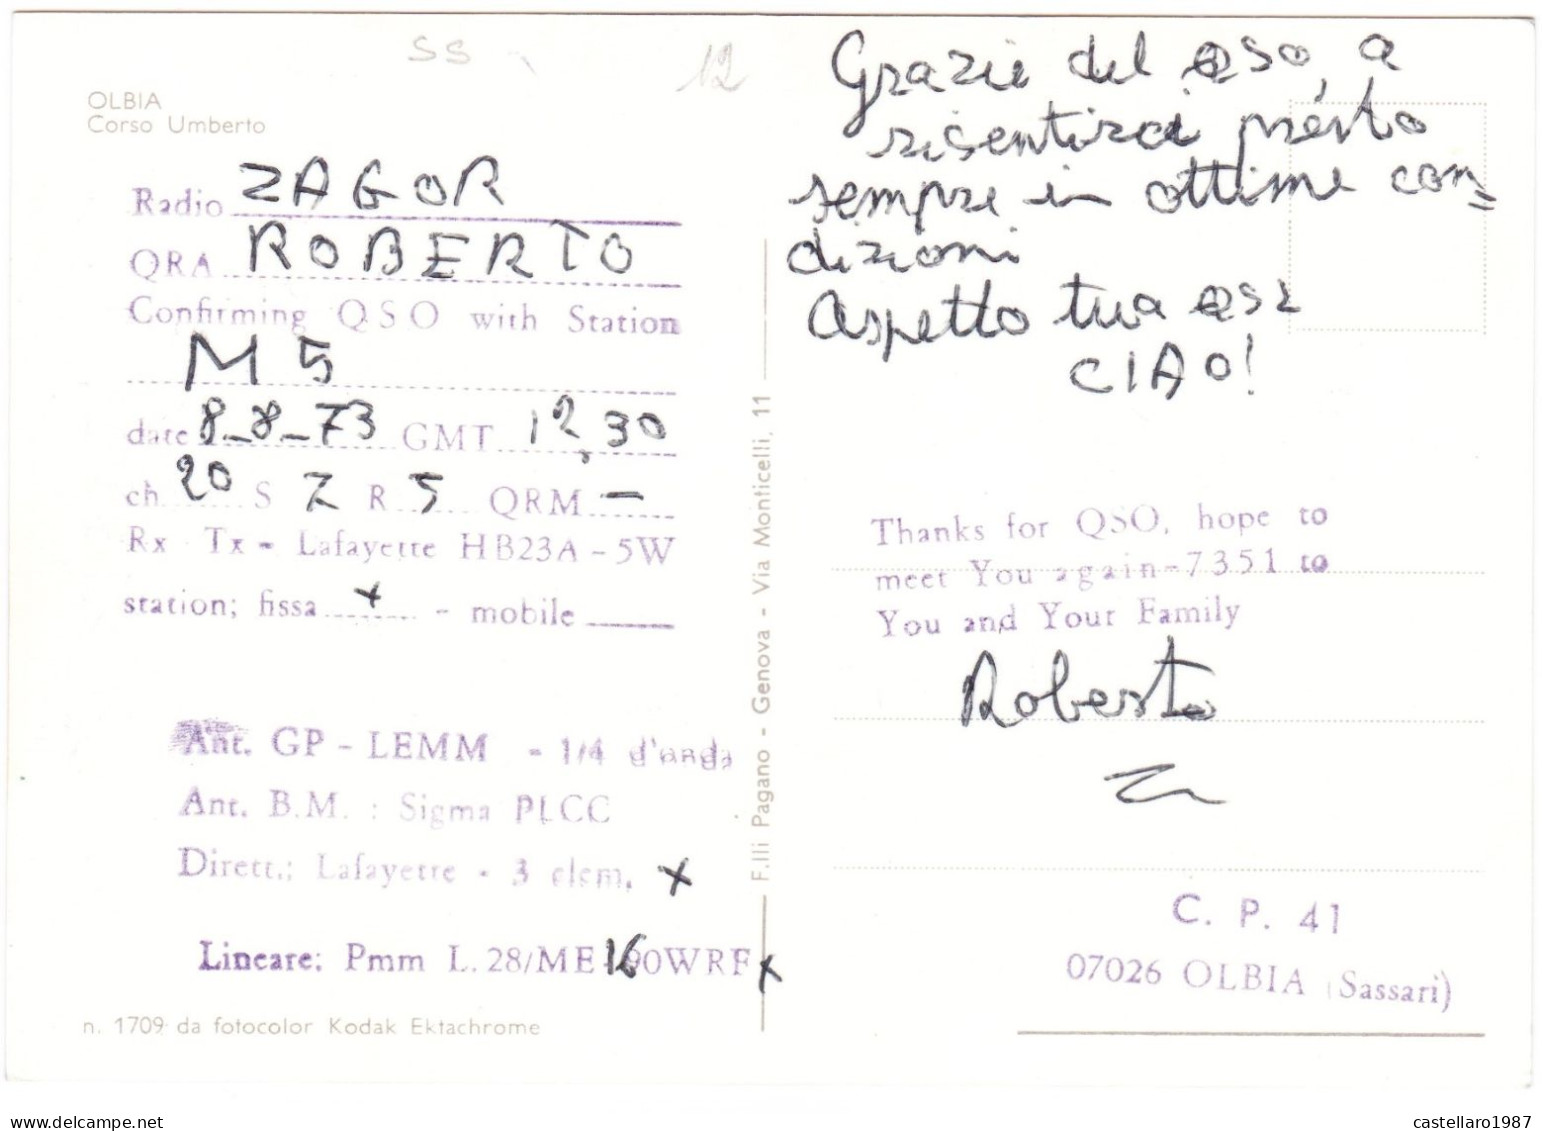 SS
12
OLBIA
Corso Umberto
Radio ZAGOR
QRA ROBERTO
Confirming QSO with Station
M 5
date 8-8-73 GMT 12,30
ch. 20 S 7 R 5 QRM —
Rx Tx - Lafayette HB23A - 5W
station; fissa x - mobile
Ant. GP - LEMM - 1/4 d'onda
Ant. B.M. : Sigma PLCC
Dirett.; Lafayette - 3 elem. x
Lineare: Pmm L. 28/ME 160WRF x
n. 1709 da fotocolor Kodak Ektachrome
F.lli Pagano - Genova - Via Monticelli, 11
Grazie del QSO, a
risentirci presto
sempre in ottime con=
dizioni
Aspetto tua QSL
CIAO!
Thanks for QSO, hope to
meet You again-7351 to
You and Your Family
Roberto
C. P. 41
07026 OLBIA (Sassari)
castellaro1987